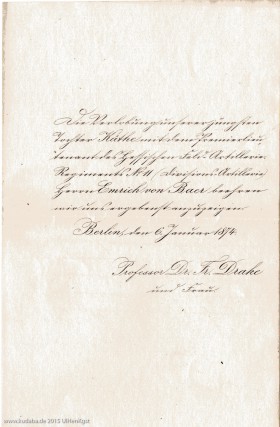 Die Verlobung unserer jüngsten
Tochter Käthe mit dem Premierlieu-
tenant des Hessischen Feld-Artillerie
Regiments No 11 Divisions Artillerie
Herrn Emrich von Baer beehren
wir uns ergebenst anzuzeigen
Berlin, den 6. Januar 1874.
Professor Dr. Fr. Drake
und Frau.
www.kudaba.de 2015 UlliferEgst